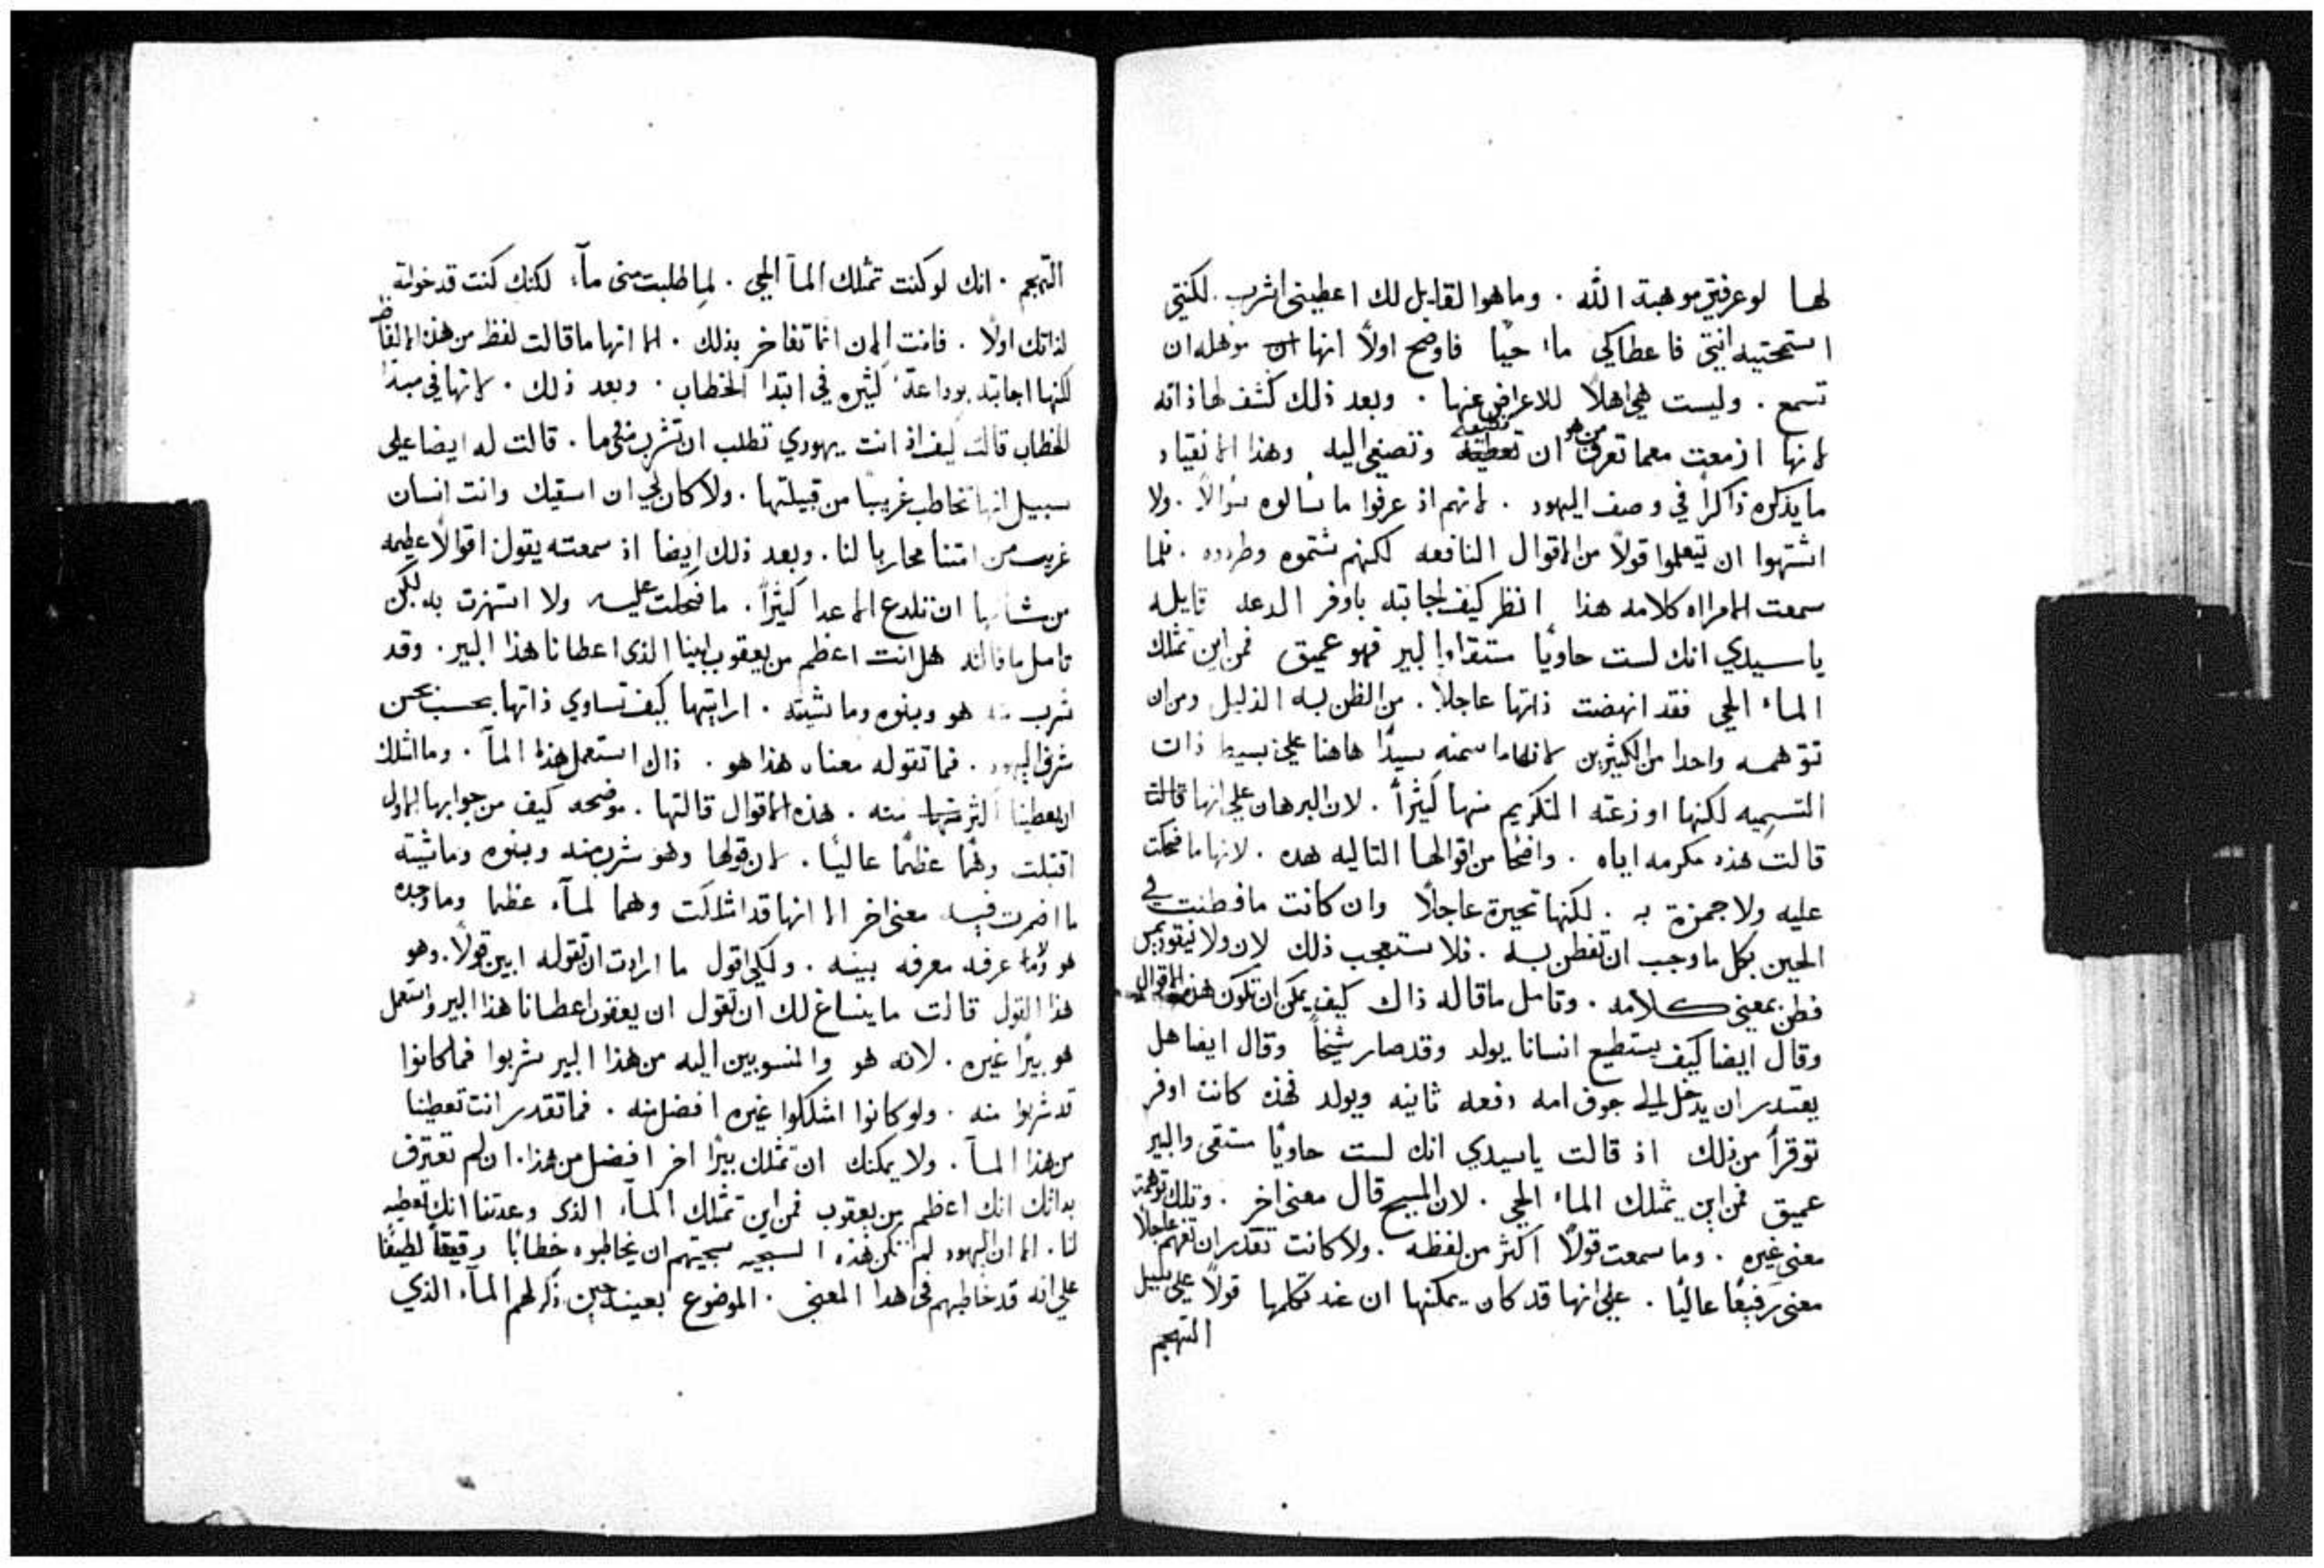 لها لوعرفتي موهبة الله . وما هو القايل لك اعطيني اشرب . لكنتي
استمحتيه انتي فاعطاكي ماء حيًا فاوضح اولًا انها ان موهله ان
تسمع . وليست هي اهلًا للاعراض عنها . وبعد ذلك كشف لها ذاته
لانها ازمعت معما تعرف من هو ان تطيعه وتصغي اليه وهذا الانقياد
ما يذكره ذاكرًا في وصف اليهود . لانهم اذ عرفوا ما سالوه سوالًا . ولا
اشتهوا ان يتعلموا قولًا من الاقوال النافعه لكنهم شتموه وطردوه . فلما
سمعت الامراه كلامه هذا انظر كيف اجابته باوفر الدعه قايله
يا سيدي انك لست حاويًا مستقا والبير فهو عميق فمن اين تمتلك
الماء الحي فقد انهضت ذاتها عاجلًا . من الظن به الذليل ومن ان
تتوهمه واحدا من الكثيرين لانها ما سمته سيدًا هاهنا على بسيط ذات
التسميه لكنها اوزعته التكريم منها كثيرًا . لان البرهان على انها قالت
قالت هذه مكرمه اياه . واضحًا من اقوالها التاليه هده . لانها ما ضحكت
عليه ولا جمزة به . لكنها تحيرة عاجلًا وان كانت ما فطنت في
الحين بكل ما وجب ان تفطن به . فلا تستعجب ذلك لان ولا نيقوديمس
فطن بمعني كلامه . وتامل ما قاله ذاك كيف يمكن ان تكون هذه الاقوال
وقال ايضا كيف يستطيع انسانا يولد وقد صار شيخًا وقال ايضا هل
يقتدر ان يدخل الي جوف امه دفعه ثانيه ويولد فهذه كانت اوفر
توقرًا من ذلك اذ قالت ياسيدي انك لست حاويًا مستقى والبير
عميق فمن اين يمتلك الماء الحي . لان المسيح قال معنى اخر . وتلك توهمة
معنى غيره . وما سمعت قولًا اكثر من لفظه . ولا كانت تقدر ان تفهم عاجلًا
معنى رفيعًا عاليًا . على انها قد كان يمكنها ان عند تكلمها قولًا على سبيل
التهجم
التهجم . انك لو كنت تمتلك المآ الحي . لما طلبت مني مآء لكنك كنت قد خولته
لذاتك اولًا . فانت الان انما تفاخر بذلك . الا انها ما قالت لفظ من هذه الالفاظ
لكنها اجابته بوداعة كثيره في ابتدا الخطاب . وبعد ذلك . لانها في مبتدا
الخطاب قالت كيف اذ انت يهودي تطلب ان تشرب مني ما . قالت له ايضا على
سبيل انها تخاطب غريبًا من قبيلتها . ولا كان لي ان اسقيك وانت انسان
غريب من امتنا محاربا لنا . وبعد ذلك ايضا اذ سمعته يقول اقوالًا عظيمه
من شانها ان تلدع الاعدا كثيرًا . ما ضحكت عليه ولا استهزت به لكن
تامل ما قالته هل انت اعظم من يعقوب ابينا الذي اعطانا هذا البير . وقد
شرب منه هو وبنوه وماشيته . ارايتها كيف تساوي ذاتها بحسب حسن
شرف اليهود . فما تقوله معناه هذا هو . ذاك استعمل هذا المآ . وما امتلك
ان يعطينا اكثر منها منه . هذه الاقوال قالتها . موضحه كيف من جوابها الاول
اقتبلت وهمًا عظيمًا عاليًا . لان قولها وهو شرب منه وبنوه وماشيته
ما اضمرت فيه معنى اخر الا انها قد امتلكت وهما لمآء عظيما وما وجده
هو ولا عرفه معرفه بينه . ولكي اقول ما ارادت ان تقوله ابين قولًا . وهو
هذا القول قالت ما ينساغ لك ان تقول ان يعقوب اعطانا هذا البير واستعمل
هو بيرًا غيره . لانه هو والمنسوبين اليه من هذا البير شربوا فما كانوا
قد شربوا منه . ولو كانوا امتلكوا غيره افضل منه . فما تقدر انت تعطينا
من هذا المآ . ولا يمكنك ان تمتلك بيرًا اخر افضل من هذا . ان لم تعترف
بذاتك انك اعظم من يعقوب فمن اين تمتلك المآء الذي وعدتنا انك تعطيه
لنا . الا ان اليهود لم تكن هذه السجيه سجيتهم ان يخاطبوه خطابًا رقيقًا لطيفًا
على انه قد خاطبهم في هدا المعنى . الموضوع بعينه حين ذكر لهم المآء الذي